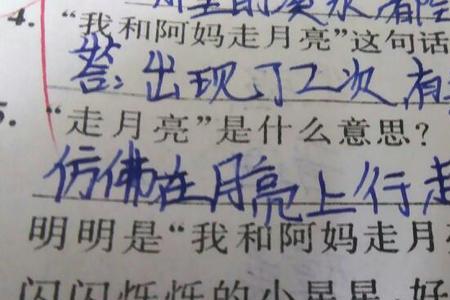 4. “我和阿妈走月亮”这句话
答: 出现了2次 有
5. “走月亮”是什么意思?
仿佛在月亮上行走
明明是“我和阿妈走月
闪闪烁烁的小星星,好